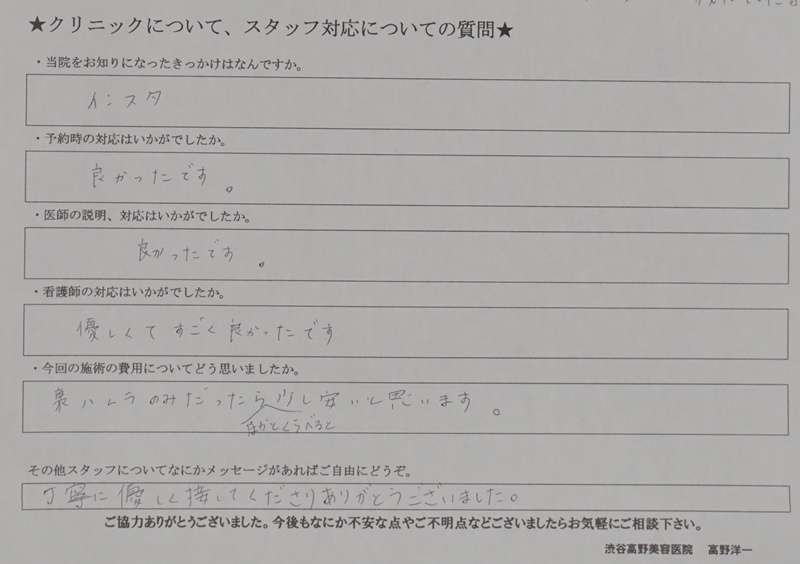 ★クリニックについて、スタッフ対応についての質問★
・当院をお知りになったきっかけはなんですか。
インスタ
・予約時の対応はいかがでしたか。
良かったです。
・医師の説明、対応はいかがでしたか。
良かったです。
・看護師の対応はいかがでしたか。
優しくてすごく良かったです
・今回の施術の費用についてどう思いましたか。
裏ハムラのみだったら少し安いと思います。
ほかとくらべると
その他スタッフについてなにかメッセージがあればご自由にどうぞ。
丁寧に優しく接してくださりありがとうございました。
ご協力ありがとうございました。今後もなにか不安な点やご不明点などございましたらお気軽にご相談下さい。
渋谷高野美容医院 高野洋一